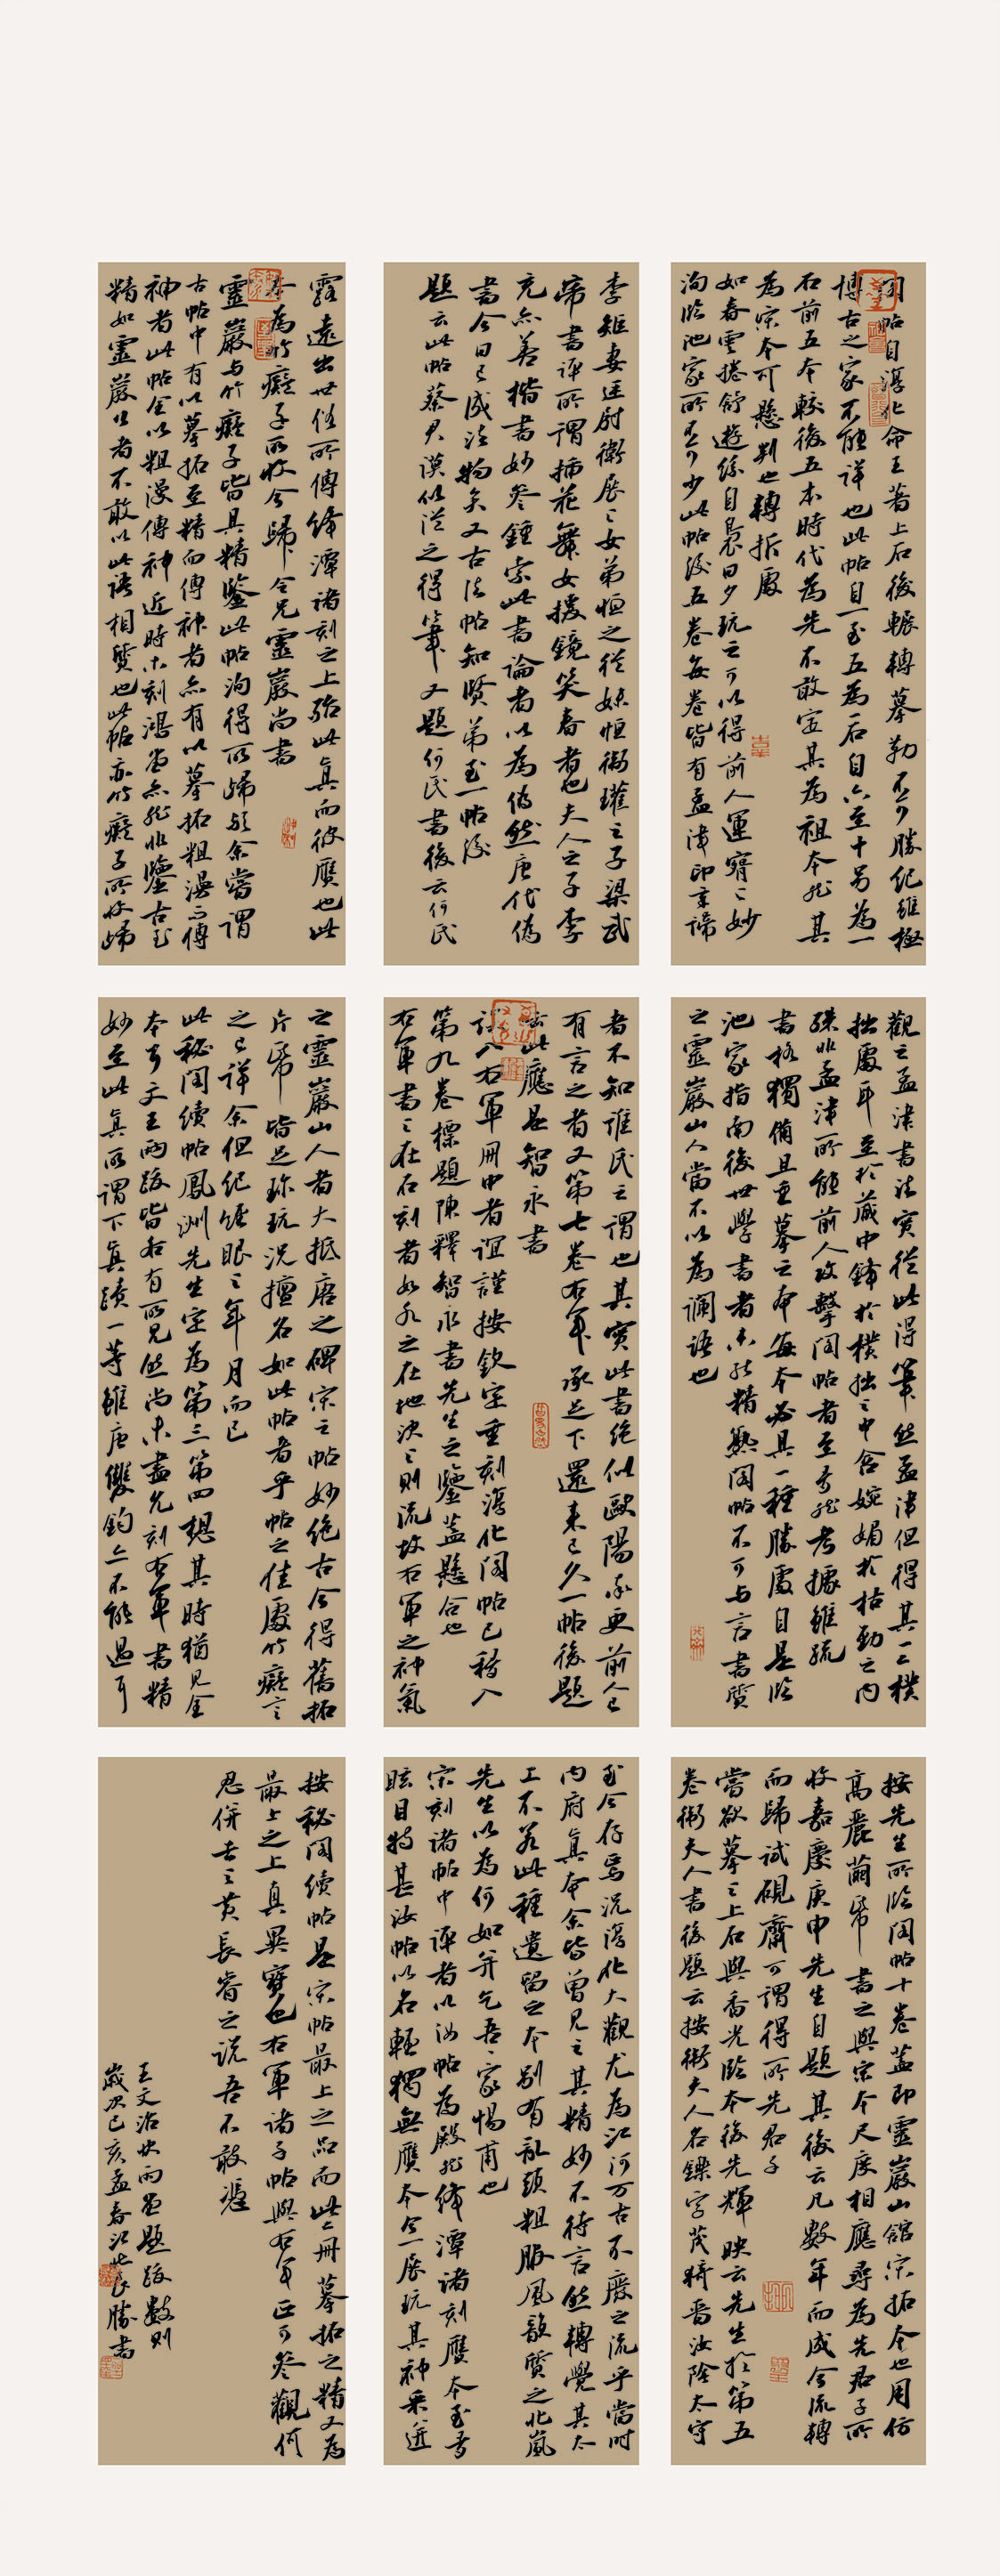 閣帖自淳化命王著上石後輾轉摹勒不可勝紀雖極
博古之家不能詳也此帖自一至五為一石自六至十另為一
石前五本較後五本時代為先不敢定其為祖本然其
為宋本可懸判也轉折處
如春雲捲舒遊絲自裊日夕玩之可以得前人運腕之妙
洵臨池家所不可少此帖後五卷每卷皆有孟津印章諦
觀之孟津書法實從此得筆然孟津但得其一二樸
拙處耳至於藏中鋒於樸拙之中含婉媚於枯勁之內
殊非孟津所能前人攻擊閣帖者至多然考據雖疏
書格獨備且重摹之本每本必具一種勝處自是臨
池家指南後世學書者未能精熟閣帖不可與言書質
之靈巖山人當不以為讕語也
按先生所臨閣帖十卷蓋即靈巖山館宋拓本也用仿
高麗繭紙書之與宋本尺度相應尋為先君子所
收嘉慶庚申先生自題其後云凡數年而成今流轉
而歸試硯齋可謂得所先君子
嘗欲摹之上石與香光臨本後先輝映云先生於第五
卷衛夫人書後題云按衛夫人名鑠字茂猗晉汝陰太守
李矩妻廷尉衛展之女弟恒之從妹恒衛瓘之子梁武
帝書評所謂插花舞女援鏡笑春者也夫人之子李
充亦善楷書妙參鍾索此書論者以為偽然唐代偽
書今日已成法物矣又古法帖知賢弟至一帖後
題云此帖蔡君謨似從之得筆又題何氏書後云何氏
者不知誰氏之謂也其實此書絕似歐陽率更前人已
有言之者又第七卷右軍承足下還來已久一帖後題
云此應是智永書
誤入右軍冊中者謹按欽定重刻淳化閣帖已移入
第九卷標題陳釋智永書先生之鑒蓋懸合也
右軍書之在石刻者如水之在地決之則流故右軍之神氣
至今存焉況淳化大觀尤為江河万古不廢之流乎當時
內府真本余皆曾見之其精妙不待言然轉覺其太
工不若此種遺留之本別有亂頭粗服風韻質之北嵐
先生以為何如并乞吾家惕甫也
宋刻諸帖中評者以汝帖為殿然絳潭諸刻贋本至多
眩目特甚汝帖以名輕獨無贋本今一展玩其神采逆
露遠出世俗所傳絳潭諸刻之上殆此真而彼贋也此
本為竹癡子所收今歸令兄靈巖尚書
靈巖与竹癡子皆具精鑒此帖洵得所歸矣余嘗謂
古帖中有以摹拓至精而傳神者亦有以摹拓粗漫而傳
神者此帖全以粗漫傳神近時木刻鴻堂亦然非鑒古至
精如靈巖公者不敢以此語相質也此帖亦竹癡子所收歸
之靈巖山人者大抵唐之碑宋之帖妙絕古今得舊拓
片紙皆足珍玩況擅名如此帖者乎帖之佳處竹癡言
之已詳余但紀經眼之年月而已
此秘閣續帖鳳洲先生定為第三第四想其時猶見全
本耳文王兩跋皆各有所見然尚未盡允刻右軍書精
妙至此真所謂下真蹟一等雖唐雙鉤亦不能過耳
按秘閣續帖是宋帖最上之品而此二冊摹拓之精又為
最上之上真異寶也右軍諸子帖與右軍正可參觀何
忍併去之黃長睿之說吾不敢憑
王文治快雨堂題跋數則
歲次己亥孟春 勝書